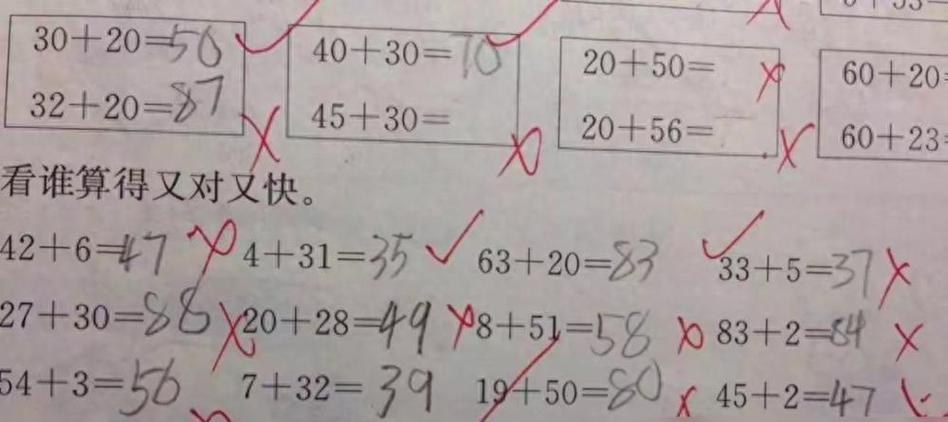 30+20=50 40+30=70 20+50= 60+20=
32+20=87 45+30= 20+56= 60+23
看谁算得又对又快。
42+6=47 4+31=35 63+20=83 33+5=37
27+30=88 20+28=49 8+51=58 83+2=84
54+3=56 7+32=39 19+50=80 45+2=47